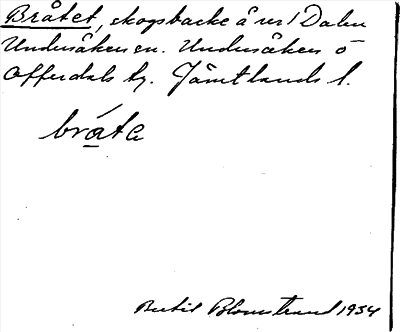 Bråtet, skogsbacke å nr 1 Dalen
Undersåkers sn. Undersåkers o
Offerdals tg. Jämtlands l.
bráta
Bertil Blomstrand 1934